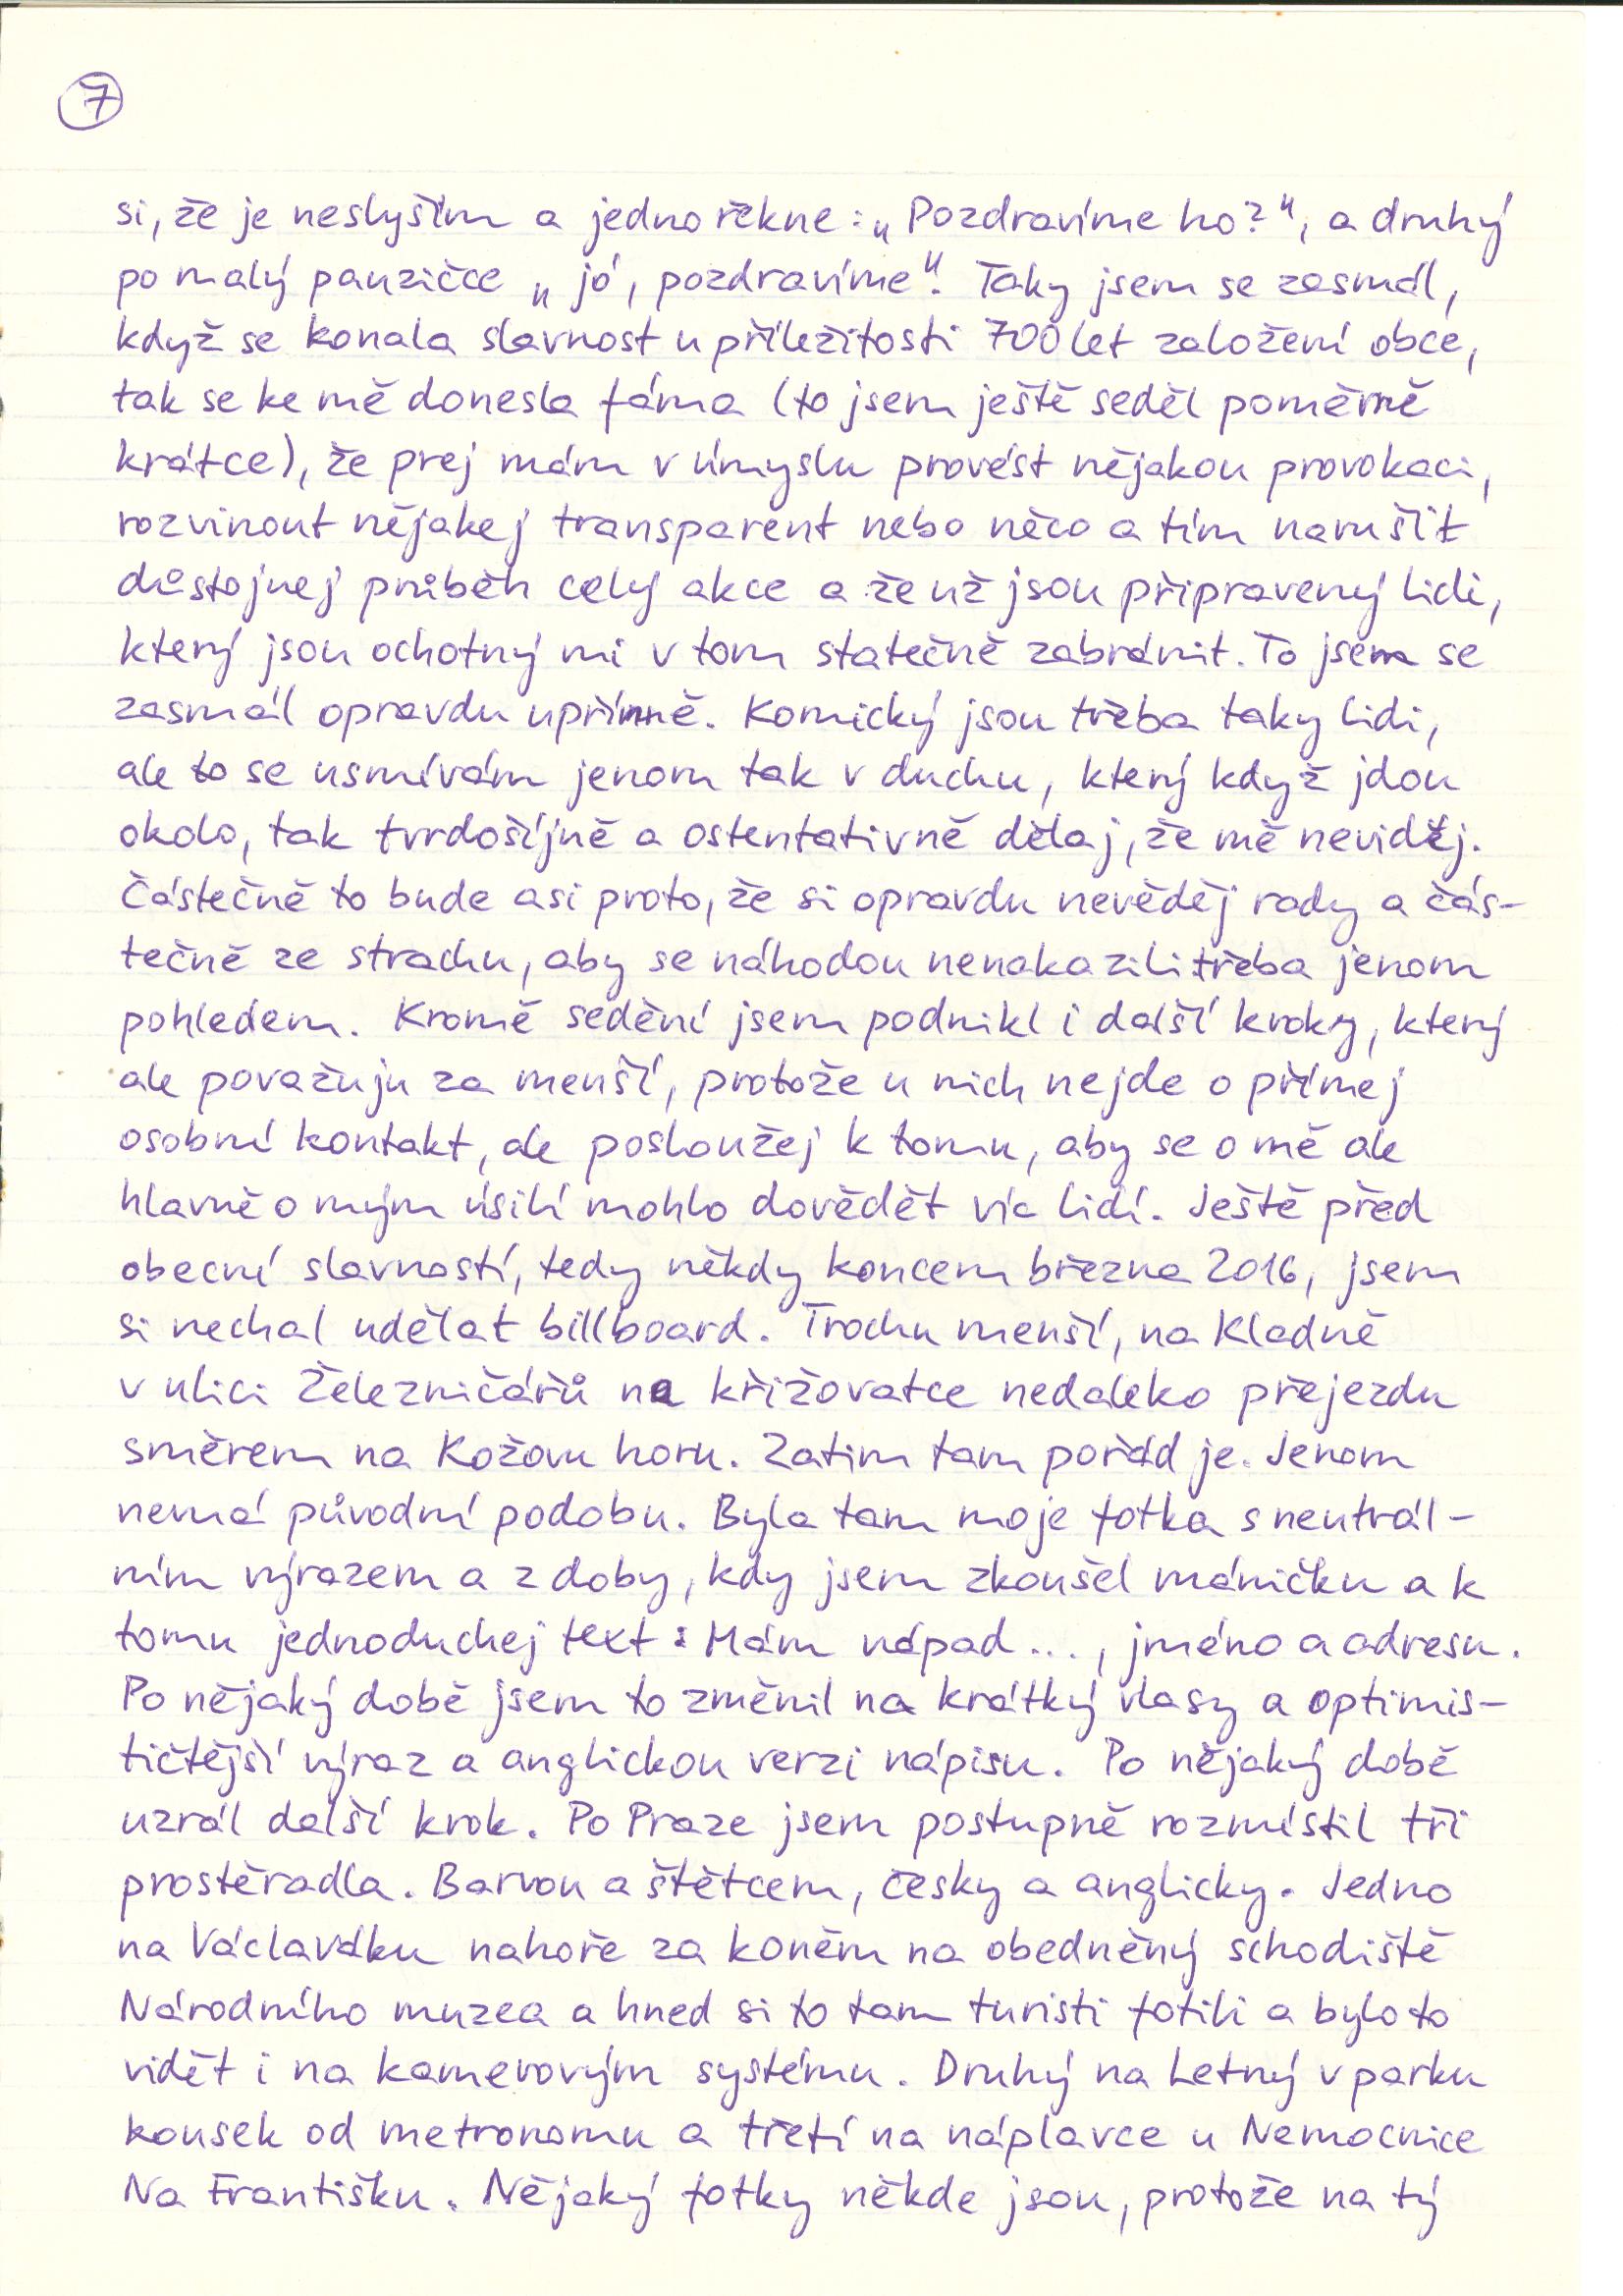 7
si, že je neslyším a jedno řekne: „Pozdravíme ho?", a druhý
po malý pauzičce „jó, pozdravíme". Taky jsem se zasmál,
když se konala slavnost u příležitosti 700 let založení obce,
tak se ke mě donesla fáma (to jsem ještě seděl poměrně
krátce), že prej mám v úmyslu provést nějakou provokaci,
rozvinout nějakej transparent nebo něco a tím narušit
důstojnej průběh celý akce a že už jsou připravený lidi,
který jsou ochotný mi v tom statečně zabránit. To jsem se
zasmál opravdu upřímně. Komický jsou třeba taky lidi,
ale to se usmívám jenom tak v duchu, který když jdou
okolo, tak tvrdošíjně a ostentativně dělaj, že mě neviděj.
Částečně to bude asi proto, že si opravdu nevěděj rady a čás-
tečně ze strachu, aby se náhodou nenakazili třeba jenom
pohledem. Kromě sedění jsem podnikl i další kroky, který
ale považuju za menší, protože u nich nejde o přímej
osobní kontakt, ale posloužej k tomu, aby se o mě ale
hlavně o mým úsilí mohlo dovědět víc lidí. Ještě před
obecní slavností, tedy někdy koncem března 2016, jsem
si nechal udělat billboard. Trochu menší, na Kladně
v ulici Železničářů na křižovatce nedaleko přejezdu
směrem na Kožovu horu. Zatim tam pořád je. Jenom
nemá původní podobu. Byla tam moje fotka s neutrál-
ním výrazem a z doby, kdy jsem zkoušel máničku a k
tomu jednoduchej text: Mám nápad..., jméno a adresu.
Po nějaký době jsem to změnil na krátký vlasy a optimis-
tičtější výraz a anglickou verzi nápisu. Po nějaký době
uzrál další krok. Po Praze jsem postupně rozmístil tři
prostěradla. Barvou a štětcem, česky a anglicky. Jedno
na Václaváku nahoře za koněm na obedněný schodiště
Národního muzea a hned si to tam turisti fotili a bylo to
vidět i na kamerovým systému. Druhý na Letný v parku
kousek od metronomu a třetí na náplavce u Nemocnice
Na Františku. Nějaký fotky někde jsou, protože na tý